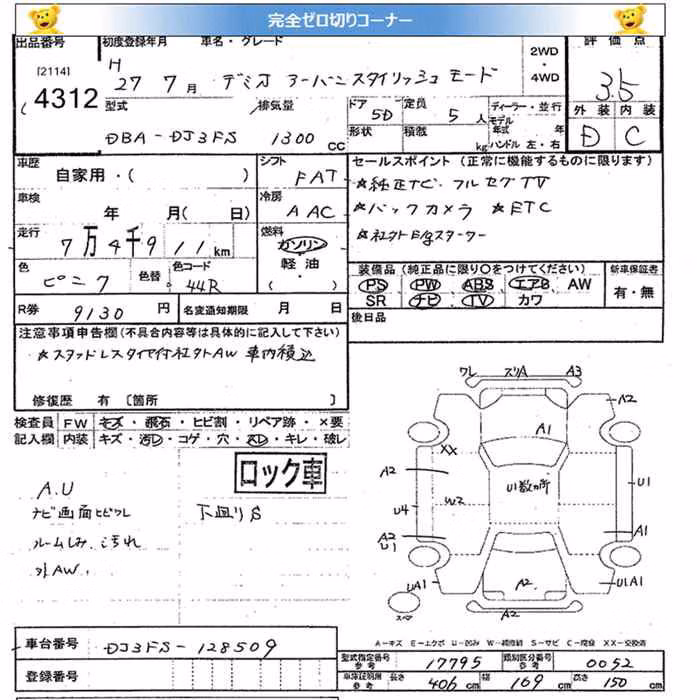 完全ゼロ切りコーナー
出品番号 初度登録年月 車名・グレード 2WD・4WD 評価点
[2114] 4312
H 27 7月 デミオ アーバンスタイリッシュモード 3.5
外装 内装
D C
型式 排気量 ドア 5D 定員 5人 ディーラー・並行
モデル年式 年
DBA-DJ3FS 1300 CC 形状 積載 kg ハンドル 左・右
車歴 シフト セールスポイント (正常に機能するものに限ります)
自家用・( ) FAT ★純正TC. フルセグTV
車検 冷房 ★バックカメラ ★ETC
年 月( 日) AAC
走行 燃料 ★社外E/gスターター
7万4千911km ガソリン
軽油
・( )
色 色替 色コード 装備品 (純正品に限り○をつけてください) 新車保証書
ピンク 44R PS PW ABS エアB AW 有・無
SR ナビ TV カワ
R券 9130円 名変通知期限 月 日 後日品
注意事項申告欄 (不具合内容等は具体的に記入して下さい)
★スタッドレスタイヤ付社外AW 車内積込
修復歴 有 [箇所 ]
検査員 FW キズ・飛石・ヒビ割・リペア跡・×要
記入欄 内装 キズ・汚レ・コゲ・穴・スレ・キレ・破レ
ロック車
A.U
ナビ画面ヒビワレ 下廻りS
ルームしみ、汚れ
外AW.
ワレ スリA A3
A2
A1
XX
A2
U数ヵ所
U1
U4 W2
A2
U1
A1
UA1 A2 U1A1
スペア
A2
A-キズ E-エクボ U-凹み W-補修跡 S-サビ C-腐食 XX-交換済
車台番号 DJ3FS-128509
型式指定番号 参考 17795 類別区分番号 参考 0052
登録番号
車庫証明用 参考 長さ 406cm 幅 169cm 高さ 150cm